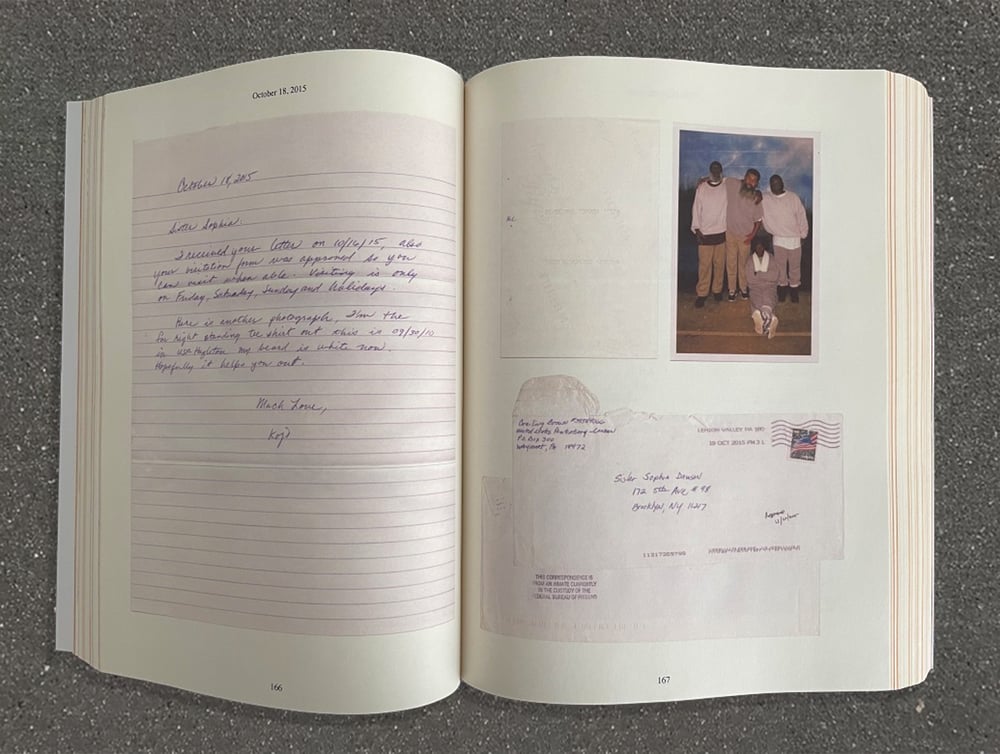 October 18, 2015
October 18, 2015
Sister Sophia:
I received your letter on 10/16/15, also
your visitation form was approved so you
can visit when able. Visiting is only
on Friday, Saturday, Sunday and Holidays.
Here is another photograph, I'm the
far right standing tee shirt out this is 09/30/10
in USP Hazleton my beard is white now.
Hopefully it helps you out.
Much Love,
166
United States Penitentiary-Canaan
P.O. Box 300
Waymart, PA 18472
LEHIGH VALLEY PA 180
19 OCT 2015 PM 3 L
Sister Sophia Dawson
172 5th Ave, # 98
Brooklyn, NY 11217
THIS CORRESPONDENCE IS
FROM AN INMATE CURRENTLY
IN THE CUSTODY OF THE
FEDERAL BUREAU OF PRISONS
167